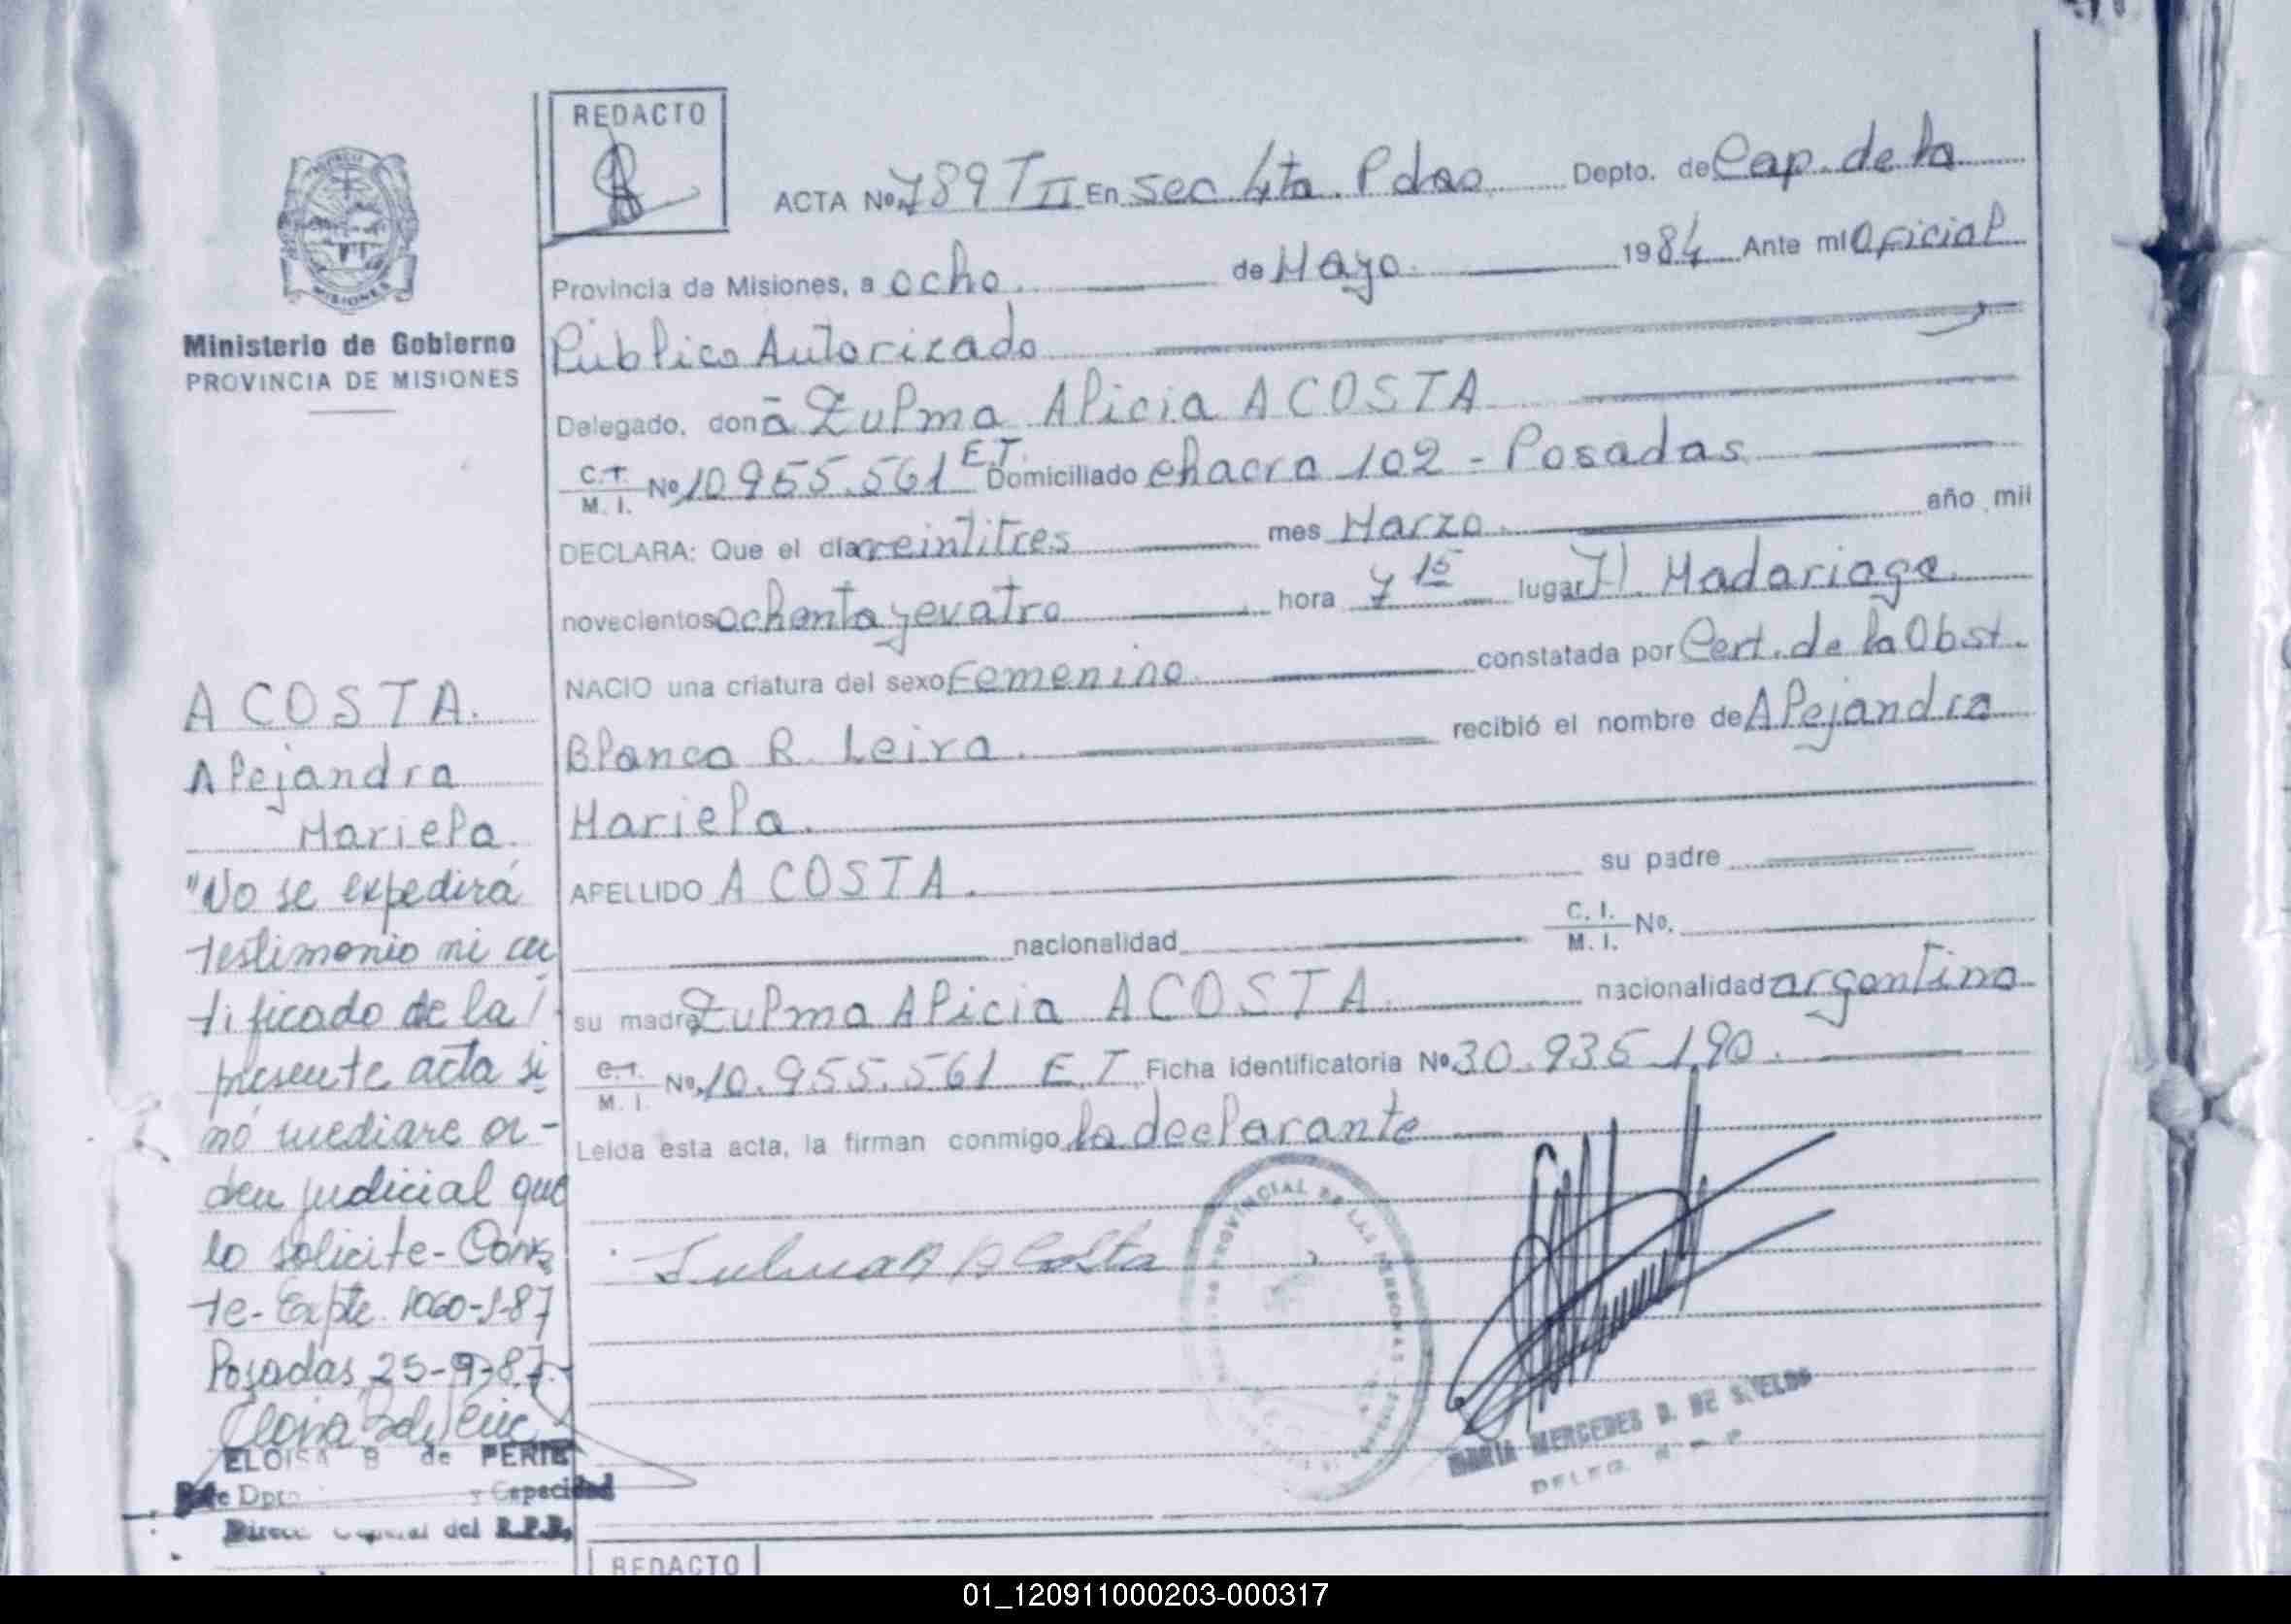 REDACTO
ACTA Nº 789 T II En Sec 4ta. Pdas Depto. de Cap. de la
Provincia de Misiones, a ocho de Mayo 1984 Ante mi Oficial
Público Autorizado
Delegado, doña Zulma Alicia ACOSTA
C.I. M. I. Nº 10955.561 E.T. Domiciliado chacra 102 - Posadas
DECLARA: Que el día veintitres mes Marzo año mil
novecientos ochenta y cuatro hora 7 15 lugar H. Madariaga
NACIO una criatura del sexo Femenino constatada por Cert. de la Obst.
Blanca R. Leiva recibió el nombre de Alejandra
Mariela
APELLIDO ACOSTA su padre
nacionalidad C. I. M. I. Nº.
su madre Zulma Alicia ACOSTA nacionalidad argentina
C.I. M. I. Nº 10.955.561 E.T. Ficha identificatoria Nº 30.935.190.
Leida esta acta, la firman conmigo la declarante
Zulma A Acosta
PROVINCIAL DE LAS PERSONAS
MARIA MERCEDES D. DE
DELEG.
MISIONES
Ministerio de Gobierno
PROVINCIA DE MISIONES
ACOSTA.
Alejandra
Mariela.
"No se expedirá
testimonio ni cer
tificado de la
presente acta si
no mediare or-
den judicial que
lo solicite- Cons
te- Expte. 1060-J-87
Posadas, 25-9-87-
ELOISA B de
Jefe Dpto y Capacidad
Direcc General del R.P.P.
REDACTO
01_120911000203-000317